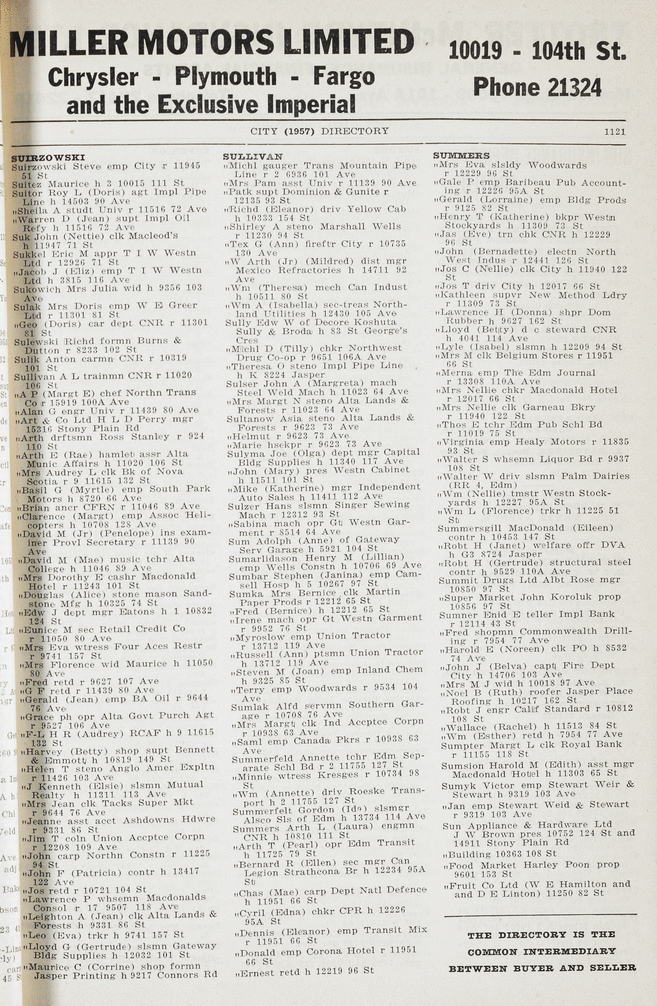 MILLER MOTORS LIMITED
Chrysler - Plymouth - Fargo
and the Exclusive Imperial
10019 - 104th St.
Phone 21324
CITY (1957) DIRECTORY 1121
SUIRZOWSKI
Suirzowski Steve emp City r 11945
51 St
Suitez Maurice h 3 10015 111 St
Suitor Roy L (Doris) agt Impl Pipe
Line h 14503 90 Ave
„Sheila A studt Univ r 11516 72 Ave
„Warren D (Jean) supt Impl Oil
Refy h 11516 72 Ave
Suk John (Nettie) clk Macleod's
h 11947 71 St
Sukkel Eric M appr T I W Westn
Ltd r 12926 71 St
„Jacob J (Eliz) emp T I W Westn
Ltd h 3815 116 Ave
Sukowich Mrs Julia wid h 9356 103
Ave
Sulak Mrs Doris emp W E Greer
Ltd r 11301 81 St
„Geo (Doris) car dept CNR r 11301
81 St
Sulewski Richd formn Burns &
Dutton r 8233 102 St
Sulik Anton carmn CNR r 10319
101 St
Sullivan A L trainmn CNR r 11020
106 St
„A P (Margt E) chef Northn Trans
Co r 15919 100A Ave
„Alan G engr Univ r 11439 80 Ave
„Art & Co Ltd H L D Perry mgr
15316 Stony Plain Rd
„Arth drftsmn Ross Stanley r 924
110 St
„Arth E (Rae) hamlet assr Alta
Munic Affairs h 11020 106 St
„Mrs Audrey L clk Bk of Nova
Scotia r 9 11615 132 St
„Basil G (Myrtle) emp South Park
Motors h 8720 66 Ave
„Brian ancr CFRN r 11046 89 Ave
„Clarence (Margt) emp Assoc Heli-
copters h 10708 128 Ave
„David M (Jr) (Penelope) ins exam-
iner Provl Secretary r 11139 90
Ave
„David M (Mae) music tchr Alta
College h 11046 89 Ave
„Mrs Dorothy E cashr Macdonald
Hotel r 11243 101 St
„Douglas (Alice) stone mason Sand-
stone Mfg h 10325 74 St
„Edw J dept mgr Eatons h 1 10832
124 St
„Eunice M sec Retail Credit Co
r 11050 80 Ave
„Mrs Eva wtress Four Aces Restr
r 9741 157 St
„Mrs Florence wid Maurice h 11050
80 Ave
„Fred retd r 9627 107 Ave
„G F retd r 11439 80 Ave
„Gerald (Jean) emp BA Oil r 9644
76 Ave
„Grace ph opr Alta Govt Purch Agt
r 9527 106 Ave
„F-L H R (Audrey) RCAF h 9 11615
132 St
„Harvey (Betty) shop supt Bennett
& Emmott h 10819 149 St
„Helen T steno Anglo Amer Expltn
r 11426 103 Ave
„J Kenneth (Elsie) slsmn Mutual
Realty h 11311 113 Ave
„Mrs Jean clk Tacks Super Mkt
r 9644 76 Ave
„Jeanne asst acct Ashdowns Hdwre
r 9331 86 St
„Jim T colln Union Accptce Corpn
r 12208 109 Ave
„John carp Northn Constn r 11225
94 St
„John F (Patricia) contr h 13417
122 Ave
„Jos retd r 10721 104 St
„Lawrence P whsemn Macdonalds
Consol r 17 9507 118 Ave
„Leighton A (Jean) clk Alta Lands &
Forests h 9331 86 St
„Leo (Eva) trkr h 9741 157 St
„Lloyd G (Gertrude) slsmn Gateway
Bldg Supplies h 12032 101 St
„Maurice C (Corrine) shop formn
Jasper Printing h 9217 Connors Rd
SULLIVAN
„Michl gauger Trans Mountain Pipe
Line r 2 6936 101 Ave
„Mrs Pam asst Univ r 11139 90 Ave
„Patk supt Dominion & Gunite r
12135 93 St
„Richd (Eleanor) driv Yellow Cab
h 10333 154 St
„Shirley A steno Marshall Wells
r 11230 94 St
„Tex G (Ann) fireftr City r 10735
130 Ave
„W Arth (Jr) (Mildred) dist mgr
Mexico Refractories h 14711 92
Ave
„Wm (Theresa) mech Can Indust
h 10511 80 St
„Wm A (Isabella) sec-treas North-
land Utilities h 12430 105 Ave
Sully Edw W of Decore Koshuta
Sully & Broda h 83 St George's
Cres
„Michl D (Tilly) chkr Northwest
Drug Co-op r 9651 106A Ave
„Theresa O steno Impl Pipe Line
h K 8224 Jasper
Sulser John A (Margreta) mach
Steel Weld Mach h 11023 64 Ave
„Mrs Margt N steno Alta Lands &
Forests r 11023 64 Ave
Sultanow Asia steno Alta Lands &
Forests r 9623 73 Ave
„Helmut r 9623 73 Ave
„Marie hsekpr r 9623 73 Ave
Sulyma Joe (Olga) dept mgr Capital
Bldg Supplies h 11340 117 Ave
„John (Mary) pres Westn Cabinet
h 11511 101 St
„Mike (Katherine) mgr Independent
Auto Sales h 11411 112 Ave
Sulzer Hans slsmn Singer Sewing
Mach r 12312 93 St
„Sabina mach opr Gt Westn Gar-
ment r 8514 64 Ave
Sum Adolph (Anne) of Gateway
Serv Garage h 5921 104 St
Sumarlidson Henry M (Lillian)
emp Wells Constn h 10706 69 Ave
Sumbar Stephen (Janina) emp Cam-
sell Hosp h 5 10267 97 St
Sumka Mrs Bernice clk Martin
Paper Prods r 12212 65 St
„Fred (Bernice) h 12212 65 St
„Irene mach opr Gt Westn Garment
r 9952 76 St
„Myroslow emp Union Tractor
r 13712 119 Ave
„Russell (Ann) ptsmn Union Tractor
h 13712 119 Ave
„Steven M (Joan) emp Inland Chem
h 9325 85 St
„Terry emp Woodwards r 9534 104
Ave
Sumlak Alfd servmn Southern Gar-
age r 10708 76 Ave
„Mrs Margt clk Ind Accptce Corpn
r 10938 63 Ave
„Saml emp Canada Pkrs r 10938 63
Ave
Summerfeld Annette tchr Edm Sep-
arate Schl Bd r 2 11755 127 St
„Minnie wtress Kresges r 10734 98
St
„Wm (Annette) driv Roeske Trans-
port h 2 11755 127 St
Summerfelt Gordon (Ida) slsmgr
Alsco Sls of Edm h 13734 114 Ave
Summers Arth L (Laura) engmn
CNR h 10810 111 St
„Arth T (Pearl) opr Edm Transit
h 11725 79 St
„Bernard R (Ellen) sec mgr Can
Legion Strathcona Br h 12234 95A
St
„Chas (Mae) carp Dept Natl Defence
h 11951 66 St
„Cyril (Edna) chkr CPR h 12226
95A St
„Dennis (Eleanor) emp Transit Mix
r 11951 66 St
„Donald emp Corona Hotel r 11951
66 St
„Ernest retd h 12219 96 St
SUMMERS
„Mrs Eva slsldy Woodwards
r 12229 96 St
„Gale P emp Baribeau Pub Account-
ing r 12226 95A St
„Gerald (Lorraine) emp Bldg Prods
r 9125 82 St
„Henry T (Katherine) bkpr Westn
Stockyards h 11309 73 St
„Jas (Eve) trn chk CNR h 12229
96 St
„John (Bernadette) electn North
West Indus r 12441 126 St
„Jos C (Nellie) clk City h 11940 122
St
„Jos T driv City h 12017 66 St
„Kathleen supvr New Method Ldry
r 11309 73 St
„Lawrence H (Donna) shpr Dom
Rubber h 9627 162 St
„Lloyd (Betsy) d c steward CNR
h 4041 114 Ave
„Lyle (Isabel) slsmn h 12209 94 St
„Mrs M clk Belgium Stores r 11951
66 St
„Merna emp The Edm Journal
r 13308 110A Ave
„Mrs Nellie chkr Macdonald Hotel
r 12017 66 St
„Mrs Nellie clk Garneau Bkry
r 11940 122 St
„Thos E tchr Edm Pub Schl Bd
r 11019 75 St
„Virginia emp Healy Motors r 11835
93 St
„Walter S whsemn Liquor Bd r 9937
108 St
„Walter W driv slsmn Palm Dairies
(RR 4, Edm)
„Wm (Nellie) tmstr Westn Stock-
yards h 12227 95A St
„Wm L (Florence) trkr h 11225 51
St
Summersgill MacDonald (Eileen)
contr h 10453 147 St
„Robt H (Janet) welfare offr DVA
h G3 8724 Jasper
„Robt H (Gertrude) structural steel
contr h 9529 110A Ave
Summit Drugs Ltd Albt Rose mgr
10850 97 St
„Super Market John Koroluk prop
10856 97 St
Sumner Enid E teller Impl Bank
r 12114 43 St
„Fred shopmn Commonwealth Drill-
ing r 7954 77 Ave
„Harold E (Noreen) clk PO h 8532
74 Ave
„John J (Belva) capt Fire Dept
City h 14706 103 Ave
„Mrs M J wid h 10018 97 Ave
„Noel B (Ruth) roofer Jasper Place
Roofing h 10217 162 St
„Robt J engr Calif Standard r 10812
108 St
„Wallace (Rachel) h 11513 84 St
„Wm (Esther) retd h 7954 77 Ave
Sumpter Margt L clk Royal Bank
r 11155 118 St
Sumsion Harold M (Edith) asst mgr
Macdonald Hotel h 11303 65 St
Sumyk Victor emp Stewart Weir &
Stewart h 9319 103 Ave
„Jan emp Stewart Weid & Stewart
r 9319 103 Ave
Sun Appliance & Hardware Ltd
J W Brown pres 10752 124 St and
14911 Stony Plain Rd
„Building 10363 108 St
„Food Market Harley Poon prop
9601 153 St
„Fruit Co Ltd (W E Hamilton and
and D E Linton) 11250 82 St
THE DIRECTORY IS THE
COMMON INTERMEDIARY
BETWEEN BUYER AND SELLER